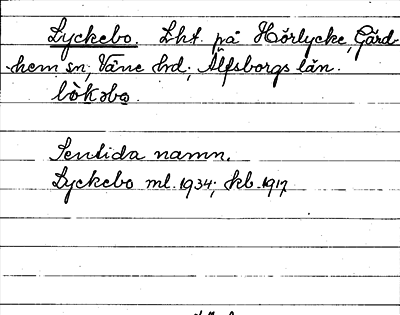 Lyckebo. Lht. på Hörlycke, Gärd-
hem sn, Väne hd, Älfsborgs län.
lòkəbo.
Sentida namn.
Lyckebo ml. 1934; kb. 1917